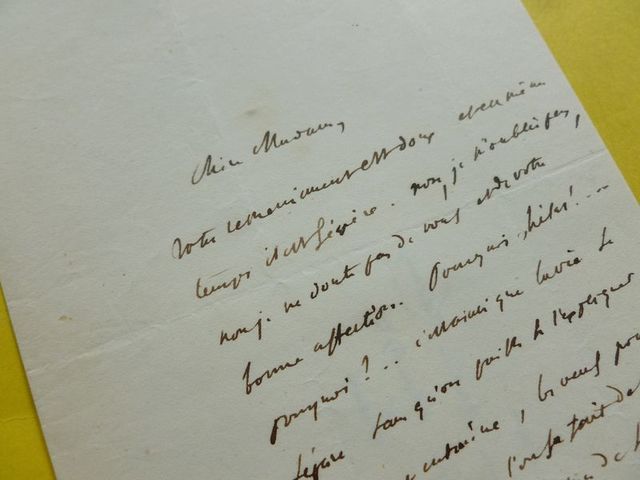 Chère Madame,
Votre remerciement est doux et en même
temps il est sévère. non, je n'oublie pas,
non je ne doute pas de vous et de votre
bonne affection. Pourquoi, hélas!...
pourquoi?... c'est ainsi que la vie se
sans qu'on puisse se l'expliquer
entraîne, le veut
l'on se fait de